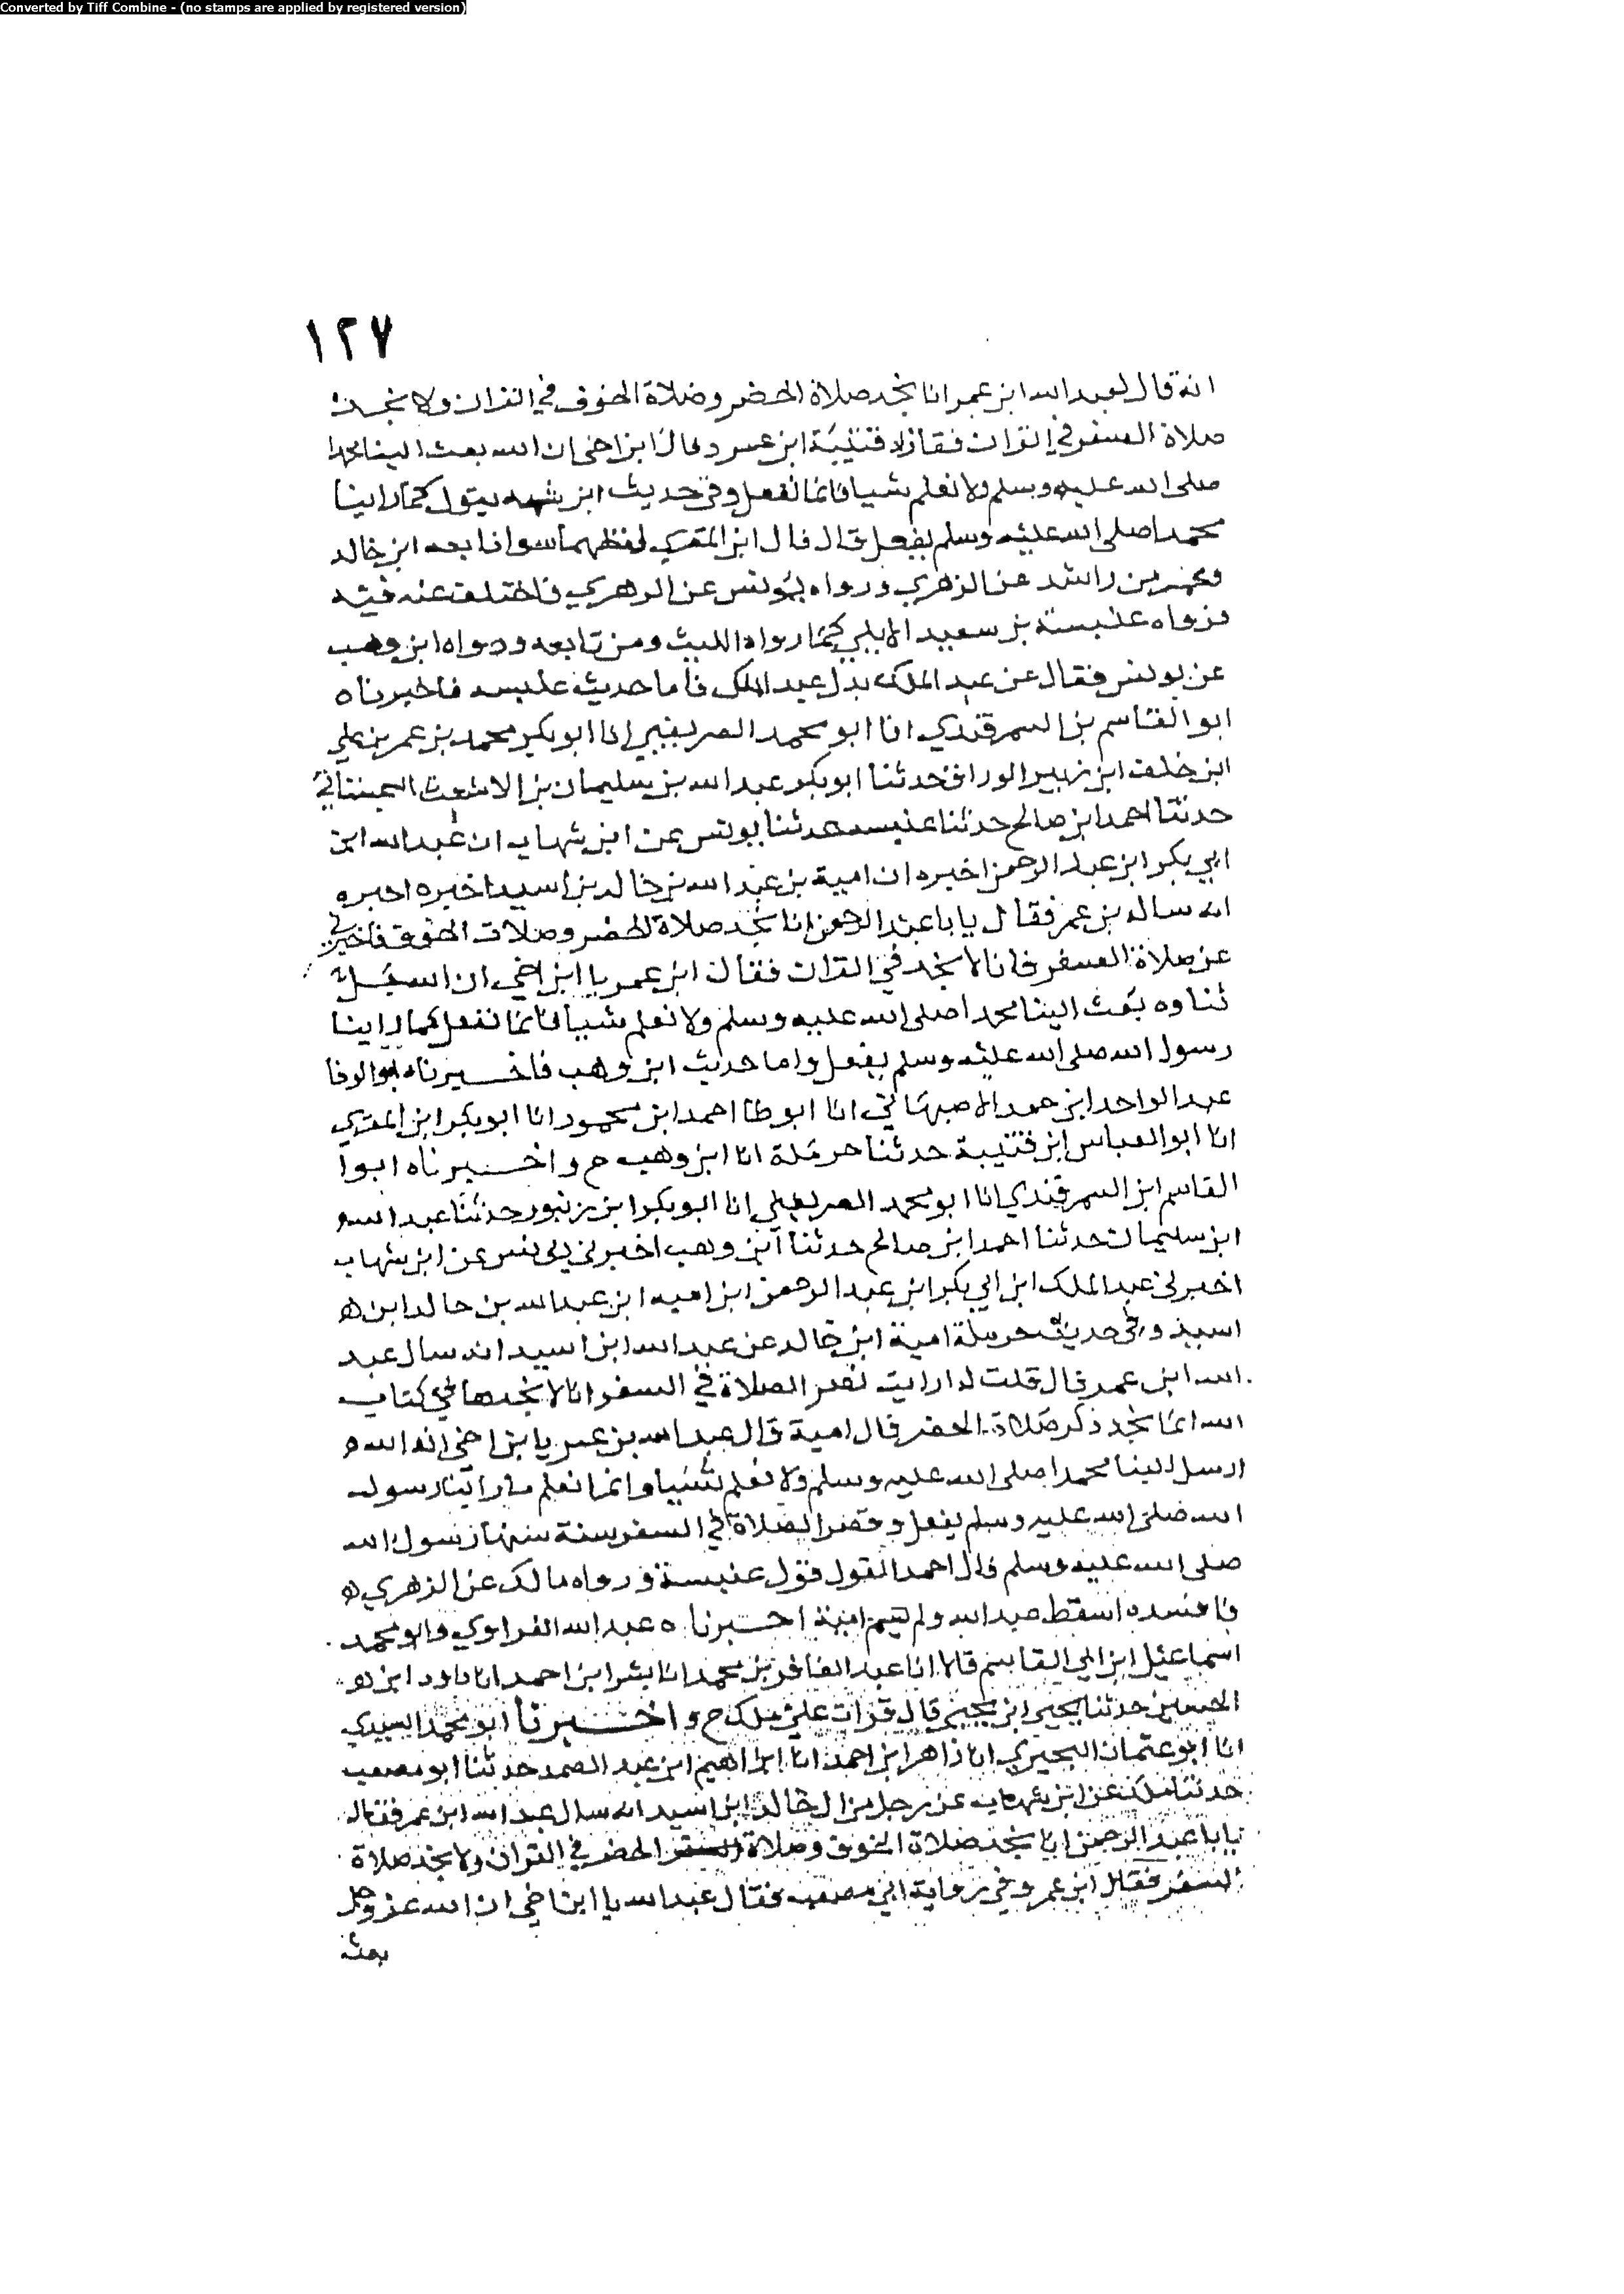 Converted by Tiff Combine - (no stamps are applied by registered version)
١٢٧
انه قال لعبد الله ابن عمر انا نجد صلاة الحضر وصلاة الخوف في القران ولا نجد
صلاة السفر في القران فقا زاد قتيبة ابن عمر وقالا ابن اخي ان الله بعث الينا محمدا
صلى الله عليه وسلم ولا نعلم شيا فانما نفعل وفي حديث ابن يقول كما راينا
محمدا صلى الله عليه وسلم يفعل قال قال ابن المقري لفظهما سوا تابعه ابن خالد
ومعمر بن راشد عن الزهري ورواه يونس عن الزهري فاختلف عنه فيه
فرواه عنبسة بن سعيد الايلي كما رواه الليث ومن تابعه ورواه ابن وهب
عن يونس فقال عن عبد الملك بدل عبد الملك فاما حديث عنبسه فاخبرناه
ابو القاسم بن السمرقندي انا ابو محمد الصريفيني انا ابو بكر محمد بن عمر بن علي
ابن خلف ابن زنبير الوراق حدثنا ابو بكر عبد الله بن سليمان بن الاشعث السجستاني
حدثنا احمد ابن صالح حدثنا عنبسه حدثنا يونس عن ابن شهاب ان عبد الله ابن
ابي بكر ابن عبد الرحمن اخبره ان امية بن عبد الله بن خالد بن اسيد اخبره اخبره
انه سال بن عمر فقال يا با عبد الرحمن انا نجد صلاة الحضر وصلات الخوف فاخبرني
عن صلاة السفر فانا لا نجد في القران فقال ابن عمر يا ابن اخي ان الله جل
ثناوه بعث الينا محمدا صلى الله عليه وسلم ولا نعلم شيا فانما نفعل كما راينا
رسول الله صلى الله عليه وسلم يفعل واما حديث ابن وهب فاخبرناه ابو الوفا
عبد الواحد ابن حمد الاصبهاني انا ابو طا احمد ابن محمود انا ابو بكر ابن المقري
انا ابو العباس ابن قتيبة حدثنا حرملة انا ابن وهب ح واخبرناه ابوا
القاسم ابن السمرقندي انا ابو محمد الصريفيني انا ابو بكر ابن زنبور حدثنا عبد الله
ابن سليمان حدثنا احمد ابن صالح حدثنا ابن وهب اخبرني يونس عن ابن شهاب
اخبرني عبد الملك ابن ابي بكر ابن عبد الرحمن ابن اميه ابن عبد الله بن خالد ابن
اسيد وفي حديث حرملة امية ابن خالد عن عبد الله ابن اسيد انه سال عبد
الله ابن عمر قال قلت له ارايت قصر الصلاة في السفر انا لا نجدها في كتاب
الله انما نجد ذكر صلاة الحضر قال امية قال عبد الله بن عمر يا بن اخي انه الله
ارسل الينا محمدا صلى الله عليه وسلم ولا نعلم شيا وانما نعلم ما راينا رسول
الله صلى الله عليه وسلم يفعل وقصر الصلاة في السفر سنة سنها رسول الله
صلى الله عليه وسلم قال احمد القول قول عنبسة ورواه مالك عن الزهري
فافسده اسقط عبد الله ولم يتم امية اخبرناه عبد الله الفراوي وابو محمد
اسماعيل ابن ابي القاسم قالا انا عبد الغافر بن محمد انا بشر ابن احمد انا داود ابن
الحسين حدثنا يحيى ابن يحيى قال قرات على ملك ح واخبرنا ابو محمد السيدي
انا ابو عثمان البحيري انا زاهر ابن احمد انا ابراهيم ابن عبد الصمد حدثنا ابو مصعب
حدثنا ملك عن ابن شهاب عن رجل من ال خالد ابن اسيد انه سال عبد الله ابن عمر فقال
يا با عبد الرحمن انا نجد صلاة الخوف وصلاة السفر الحضر في القران ولا نجد صلاة
السفر فقال ابن عمر وفي رواية ابي مصعب فقال عبد الله يا ابن اخي ان الله عز وجل
بعث